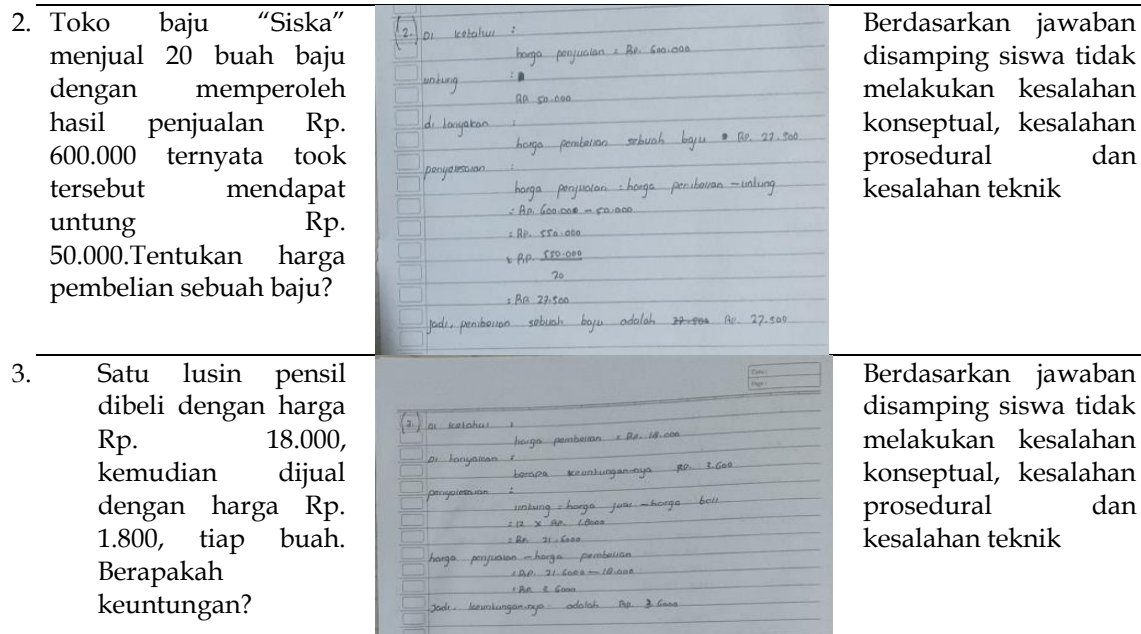 2. Toko baju “Siska”
menjual 20 buah baju
dengan memperoleh
hasil penjualan Rp.
600.000 ternyata took
tersebut mendapat
untung Rp.
50.000.Tentukan harga
pembelian sebuah baju?
(2.) Di ketahui :
harga penjualan = Rp. 600.000
untung :
Rp 50.000
di tanyakan :
harga pembelian sebuah baju Rp. 27.500
penyelesaian :
harga penjualan = harga pembelian - untung
= Rp. 600.000 - 50.000
= Rp. 550.000
= Rp. 550.000
20
= Rp 27.500
jadi, pembelian sebuah baju adalah Rp. 27.500
Berdasarkan jawaban
disamping siswa tidak
melakukan kesalahan
konseptual, kesalahan
prosedural dan
kesalahan teknik
3. Satu lusin pensil
dibeli dengan harga
Rp. 18.000,
kemudian dijual
dengan harga Rp.
1.800, tiap buah.
Berapakah
keuntungan?
Date :
Page :
(3.) Di ketahui :
harga pembelian = Rp. 18.000
Di tanyakan :
berapa keuntungannya Rp. 3.600
penyelesaian :
untung = harga jual - harga beli
= 12 x Rp.
= Rp.
harga penjualan - harga pembelian
= Rp.
= Rp.
Jadi, keuntungannya adalah Rp.
Berdasarkan jawaban
disamping siswa tidak
melakukan kesalahan
konseptual, kesalahan
prosedural dan
kesalahan teknik